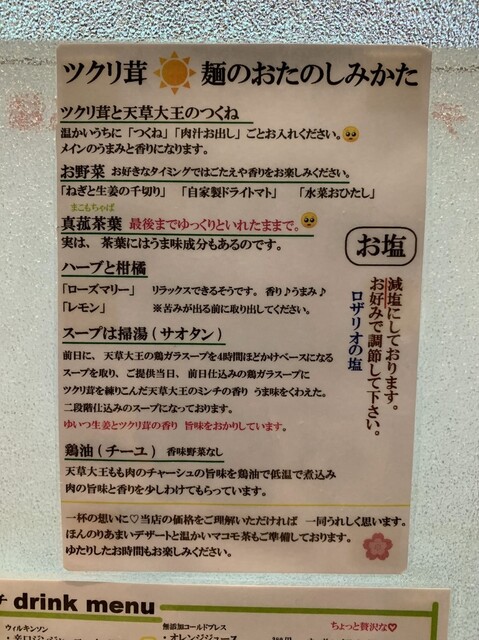 ツクリ茸☀️麺のおたのしみかた
ツクリ茸と天草大王のつくね
温かいうちに「つくね」「肉汁お出し」ごとお入れください。🥺
メインのうまみと香りになります。
お野菜 お好きなタイミングではごたえや香りをお楽しみください。
「ねぎと生姜の千切り」 「自家製ドライトマト」 「水菜おひたし」
まこもちゃば
真菰茶葉 最後までゆっくりといれたままで。🥺
実は、茶葉にはうま味成分もあるのです。
ハーブと柑橘
「ローズマリー」 リラックスできるそうです。香り♪うまみ♪
「レモン」 ※苦みが出る前に取り出してください。
お塩
減塩にしております。
お好みで調節して下さい。
ロザリオの塩
スープは掃湯(サオタン)
前日に、天草大王の鶏ガラスープを4時間ほどかけベースになる
スープを取り、ご提供当日、前日仕込みの鶏ガラスープに
ツクリ茸を練りこんだ天草大王のミンチの香り うま味をくわえた。
二段階仕込みのスープになっております。
ゆいつ生姜とツクリ茸の香り 旨味をおかりしています。
鶏油(チーユ) 香味野菜なし
天草大王もも肉のチャーシュの旨味を鶏油で低温で煮込み
肉の旨味と香りを少しわけてもらっています。
一杯の想いに♡当店の価格をご理解いただければ 一同うれしく思います。
ほんのりあまいデザートと温かいマコモ茶もご準備しております。
ゆたりしたお時間もお楽しみください。
チ drink menu
ウィルキンソン
無添加コールドプレス
・オレンジジュース
ちょっと贅沢な♡